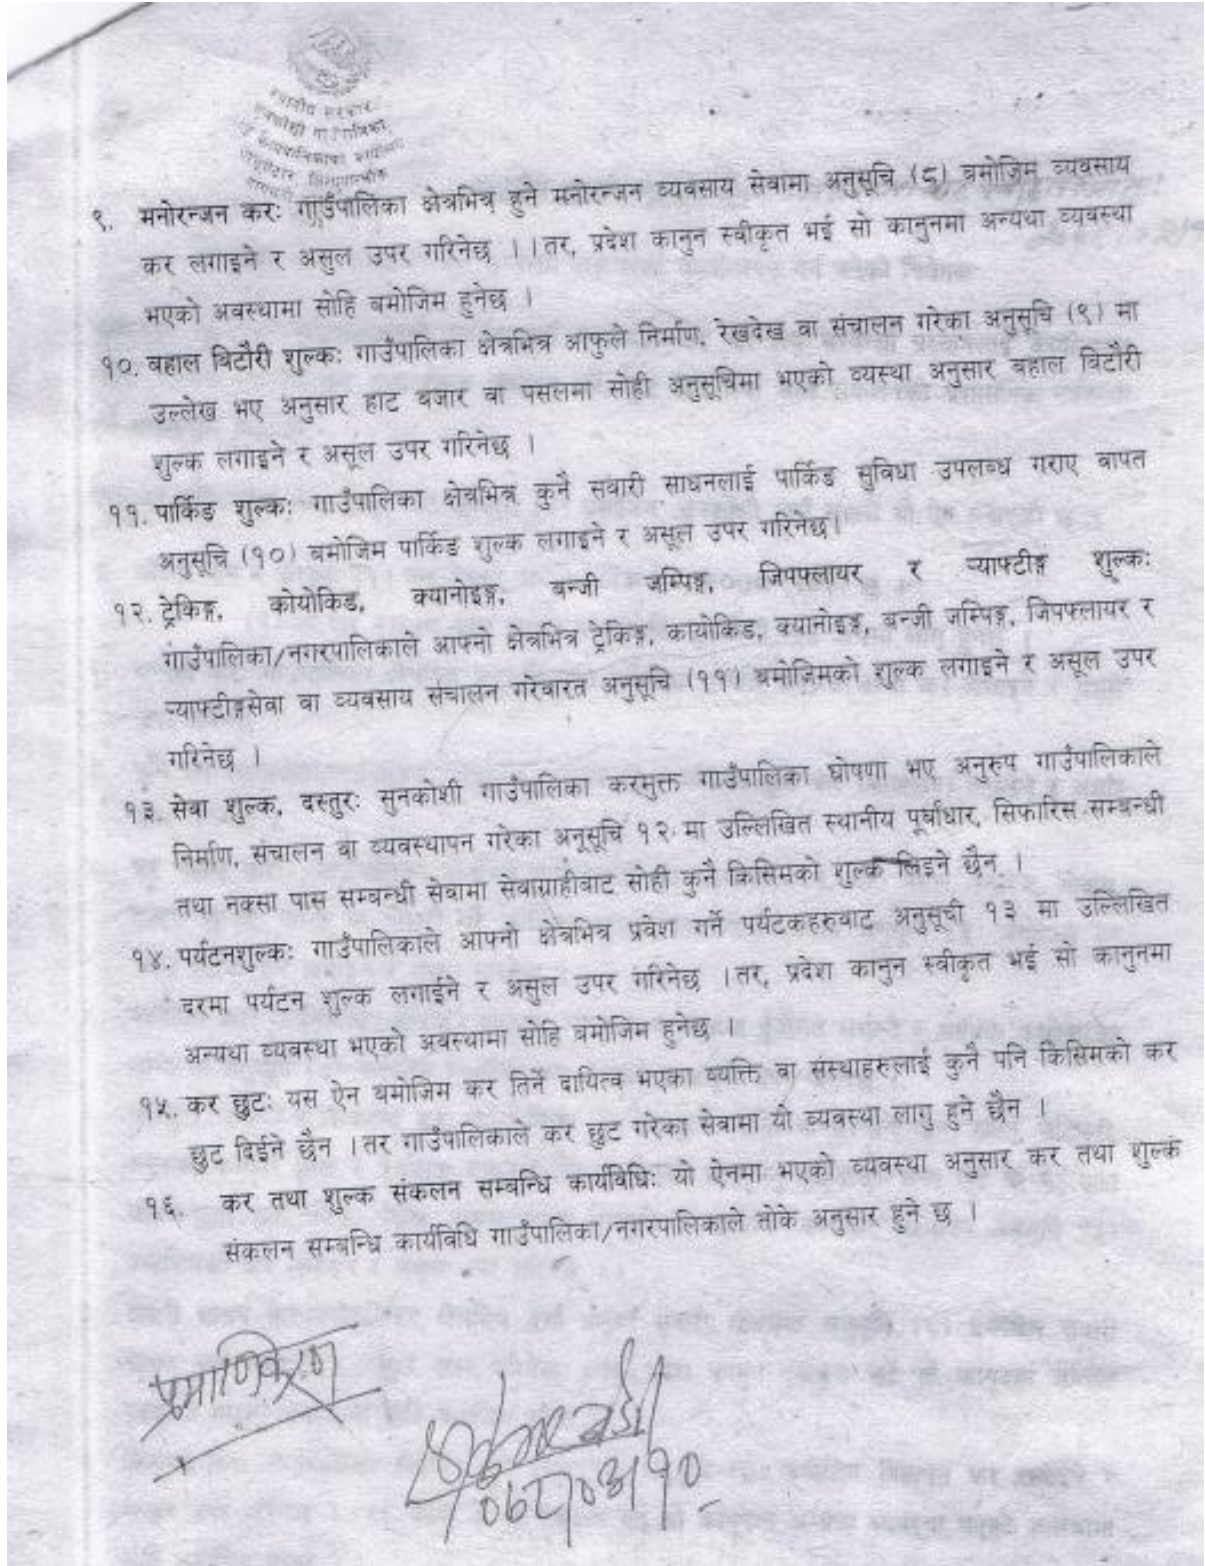 ९. मनोरन्जन करः गाउँपालिका क्षेत्रभित्र हुने मनोरन्जन व्यवसाय सेवामा अनुसूचि (८) बमोजिम व्यवसाय
कर लगाइने र असुल उपर गरिनेछ ।।तर, प्रदेश कानुन स्वीकृत भई सो कानुनमा अन्यथा व्यवस्था
भएको अवस्थामा सोहि बमोजिम हुनेछ ।
१०. बहाल बिटौरी शुल्कः गाउँपालिका क्षेत्रभित्र आफुले निर्माण, रेखदेख वा संचालन गरेका अनुसूचि (९) मा
उल्लेख भए अनुसार हाट बजार वा पसलमा सोही अनुसूचिमा भएको व्यस्था अनुसार बहाल बिटौरी
शुल्क लगाइने र असूल उपर गरिनेछ ।
११. पार्किङ शुल्कः गाउँपालिका क्षेत्रभित्र कुनै सवारी साधनलाई पार्किङ सुविधा उपलब्ध गराए वापत
अनुसूचि (१०) बमोजिम पार्किङ शुल्क लगाइने र असूल उपर गरिनेछ।
१२. ट्रेकिङ्ग, कोयोकिङ, क्यानोइङ्ग, बन्जी जम्पिङ्ग, जिपफ्लायर र प्याफ्टीङ्ग शुल्कः
गाउँपालिका/नगरपालिकाले आफ्नो क्षेत्रभित्र ट्रेकिङ्ग, कायोकिङ, क्यानोइङ्ग, बन्जी जम्पिङ्ग, जिपफ्लायर र
प्याफ्टीङ्गसेवा वा व्यवसाय संचालन गरेवारत अनुसूचि (११) बमोजिमको शुल्क लगाइने र असूल उपर
गरिनेछ ।
१३. सेवा शुल्क, दस्तुरः सुनकोशी गाउँपालिका करमुक्त गाउँपालिका घोषणा भए अनुरुप गाउँपालिकाले
निर्माण, संचालन वा व्यवस्थापन गरेका अनूसूचि १२ मा उल्लिखित स्थानीय पूर्वाधार, सिफारिस सम्बन्धी
तथा नक्सा पास सम्बन्धी सेवामा सेवाग्राहीबाट सोही कुनै किसिमको शुल्क लिइने छैन ।
१४. पर्यटनशुल्कः गाउँपालिकाले आफ्नो क्षेत्रभित्र प्रवेश गर्ने पर्यटकहरुबाट अनुसूची १३ मा उल्लिखित
दरमा पर्यटन शुल्क लगाईने र असुल उपर गरिनेछ ।तर, प्रदेश कानुन स्वीकृत भई सो कानुनमा
अन्यथा व्यवस्था भएको अवस्थामा सोहि बमोजिम हुनेछ ।
१५. कर छुटः यस ऐन बमोजिम कर तिर्ने दायित्व भएका व्यक्ति वा संस्थाहरुलाई कुनै पनि किसिमको कर
छुट दिईने छैन ।तर गाउँपालिकाले कर छुट गरेका सेवामा यो व्यवस्था लागु हुने छैन ।
१६. कर तथा शुल्क संकलन सम्बन्धि कार्यविधिः यो ऐनमा भएको व्यवस्था अनुसार कर तथा शुल्क
संकलन सम्बन्धि कार्यविधि गाउँपालिका/नगरपालिकाले तोके अनुसार हुने छ ।
प्रमाणिकरण